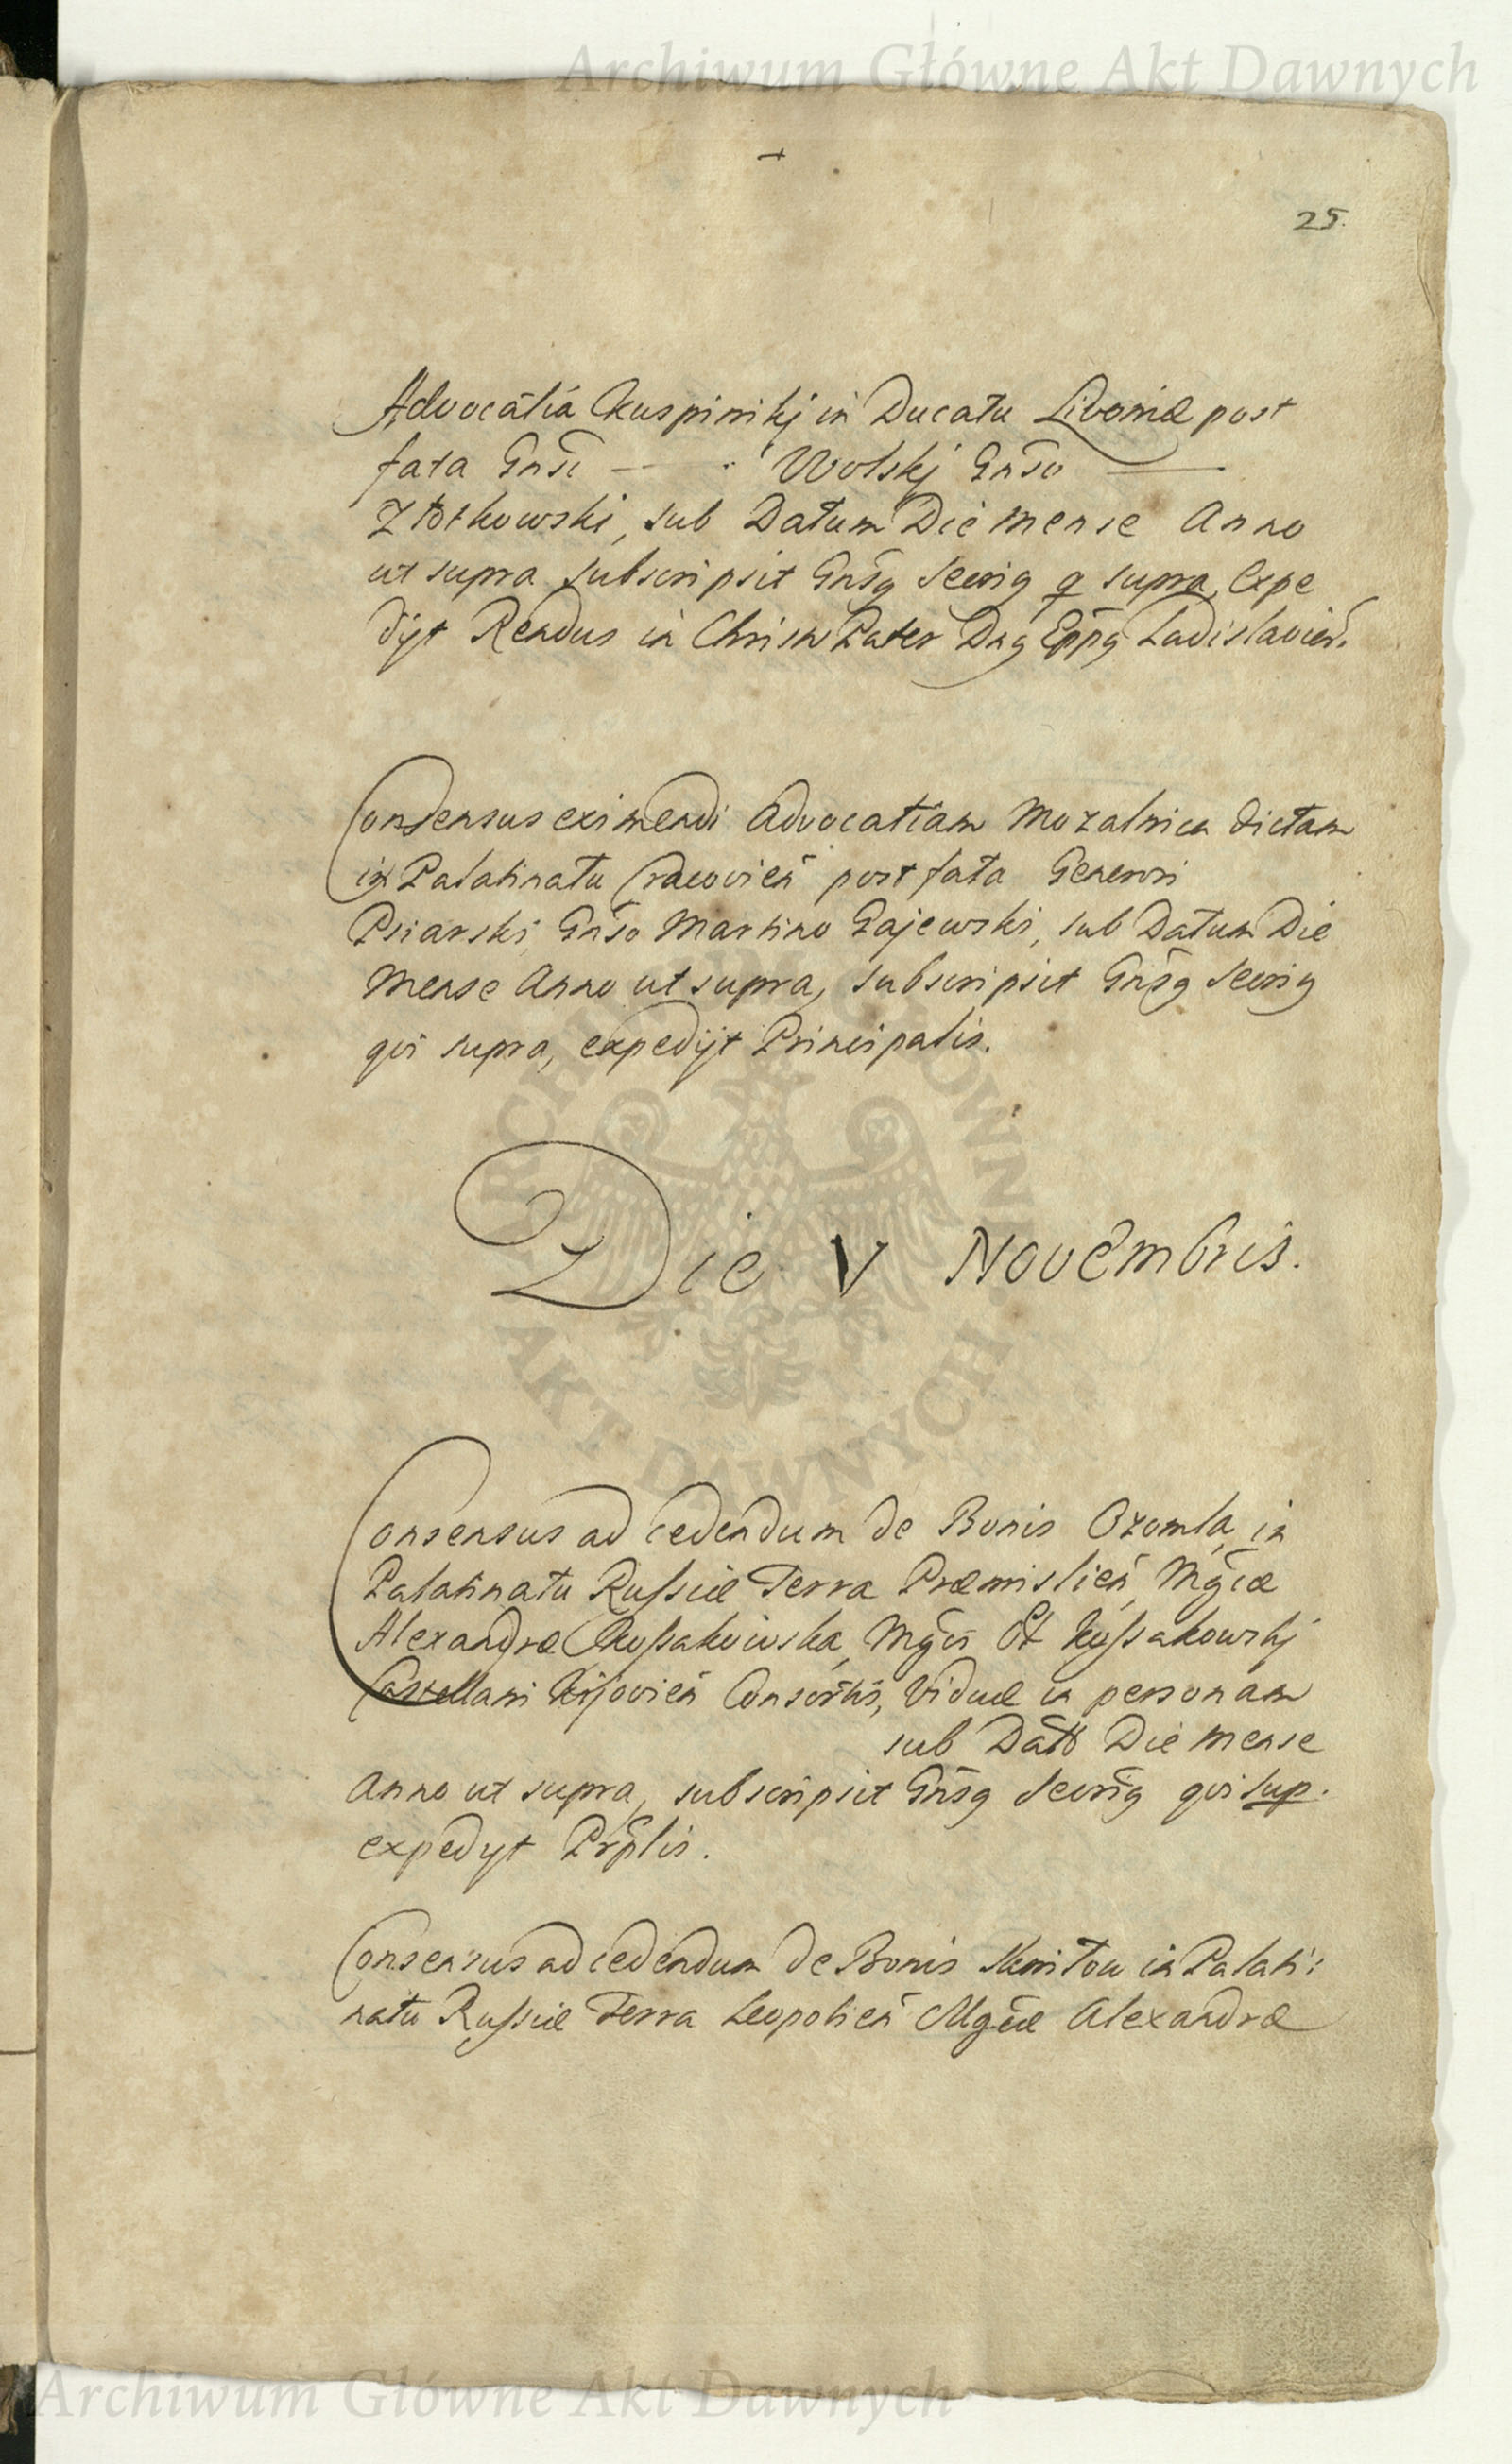 Archiwum Główne Akt Dawnych
25.
Advocatia Kuspinski in Ducatu Livoniæ post
fata Gnsi — Wolskj Gnso —
Złotkowski, sub Datum Die Mense Anno
ut supra subscripsit Gnsq Secriq q supra, Expe
dijt Rendus in Christo Pater Dnq Eppq Ladislavien.
Consensus eximendi Advocatiam Mozalnica dictam
in Palatinatu Cracovien post fata Generosi
Psiarski Gnso Martino Gajewski, sub Datum Die
Mense Anno ut supra, subscripsit Gnsq Secriq
qvi supra, expedijt Principalis.
Die V Novembris.
Consensus ad cedendum de Bonis Ozomla, in
Palatinatu Russiæ Terra Præmislien, Mgcæ
Alexandræ Kossakowska, Mgci Kossakowskj
Castellani Kijovien Consortis, Viduæ in personam
sub Datt Die Mense
Anno ut supra, subscripsit Gnsq Secriq qvi sup.
expedyt Prplis.
Consensus ad cedendum de Bonis in Palati:
natu Russiæ Terra Leopolien Mgcæ Alexandræ
ARCHIWUM GŁÓWNE
AKT DAWNYCH
Archiwum Główne Akt Dawnych